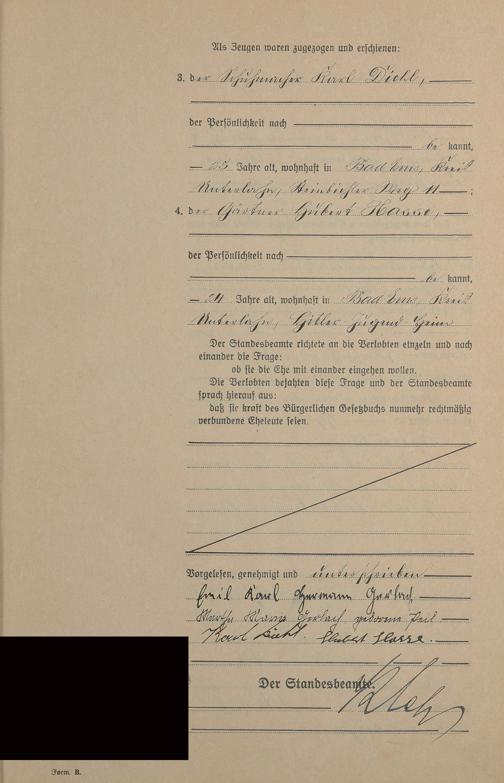 Als Zeugen waren zugezogen und erschienen:
3. der Schuhmacher Karl Diehl,
der Persönlichkeit nach
be kannt,
Jahre alt, wohnhaft in Bad Ems, Kreis
Unterlahn, Weg 11 ;
4. der Gärtner Hubert Hasse,
der Persönlichkeit nach
be kannt,
24 Jahre alt, wohnhaft in Bad Ems, Kreis
Unterlahn, Hitler-Jugend-Heim
Der Standesbeamte richtete an die Verlobten einzeln und nach
einander die Frage:
ob sie die Ehe mit einander eingehen wollen.
Die Verlobten bejahten diese Frage und der Standesbeamte
sprach hierauf aus:
daß sie kraft des Bürgerlichen Gesetzbuchs nunmehr rechtmäßig
verbundene Eheleute seien.
Vorgelesen, genehmigt und unterschrieben
Emil Karl Hermann Gerlach
Gerlach geborene
Karl Diehl. Hubert Hasse.
Der Standesbeamte.
Form. B.